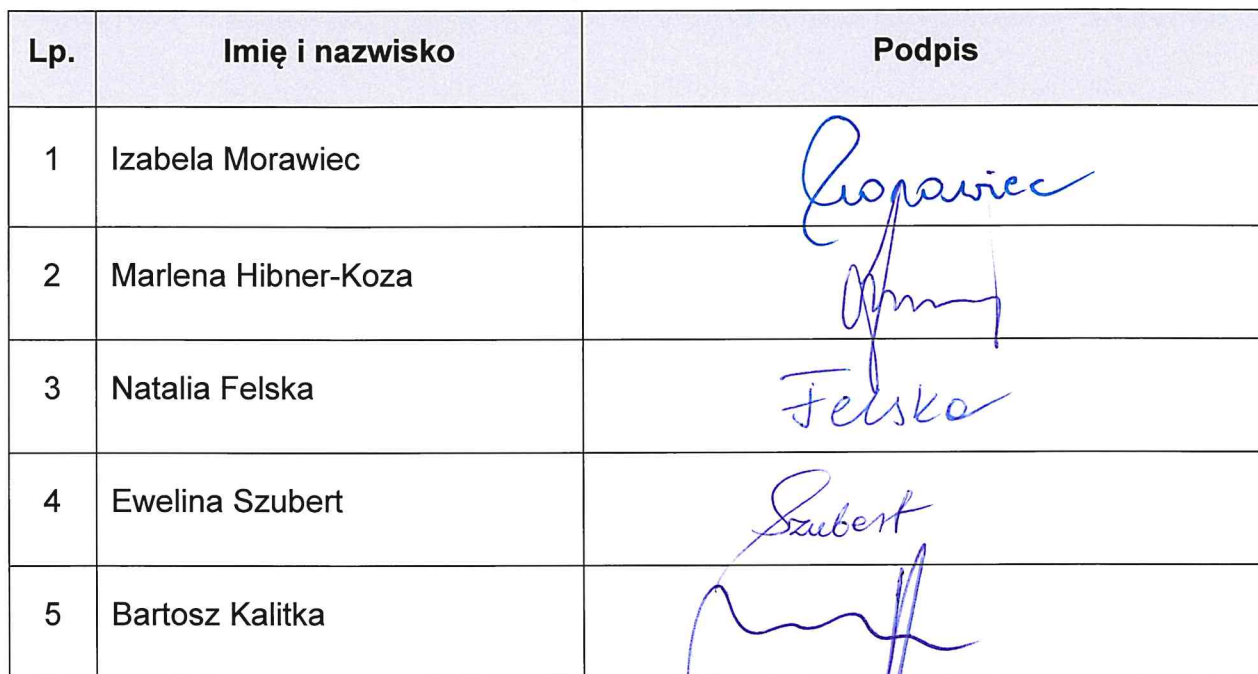 Lp. Imię i nazwisko Podpis
1 Izabela Morawiec Morawiec
2 Marlena Hibner-Koza
3 Natalia Felska Felska
4 Ewelina Szubert Szubert
5 Bartosz Kalitka